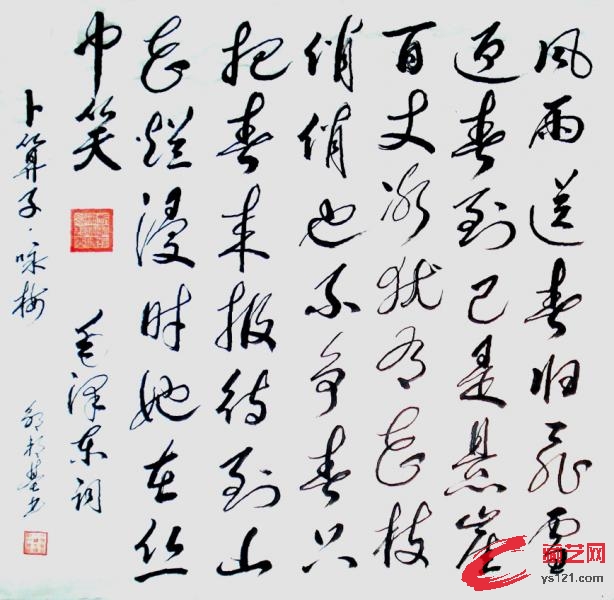 风雨送春归飞雪
迎春到已是悬崖
百丈冰犹有花枝
俏俏也不争春只
把春来报待到山
花烂漫时她在丛
中笑 毛泽东词
卜算子·咏梅
艺网
ys121.com